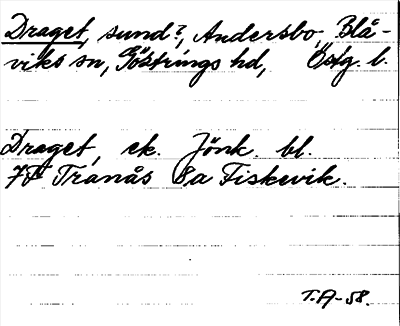 Draget, sund?, Andersbo, Blå-
viks sn, Göstrings hd, Östg. l.
Draget, ek. Jönk. bl.
7F Tranås 8a Fiskevik.
T.A-58.